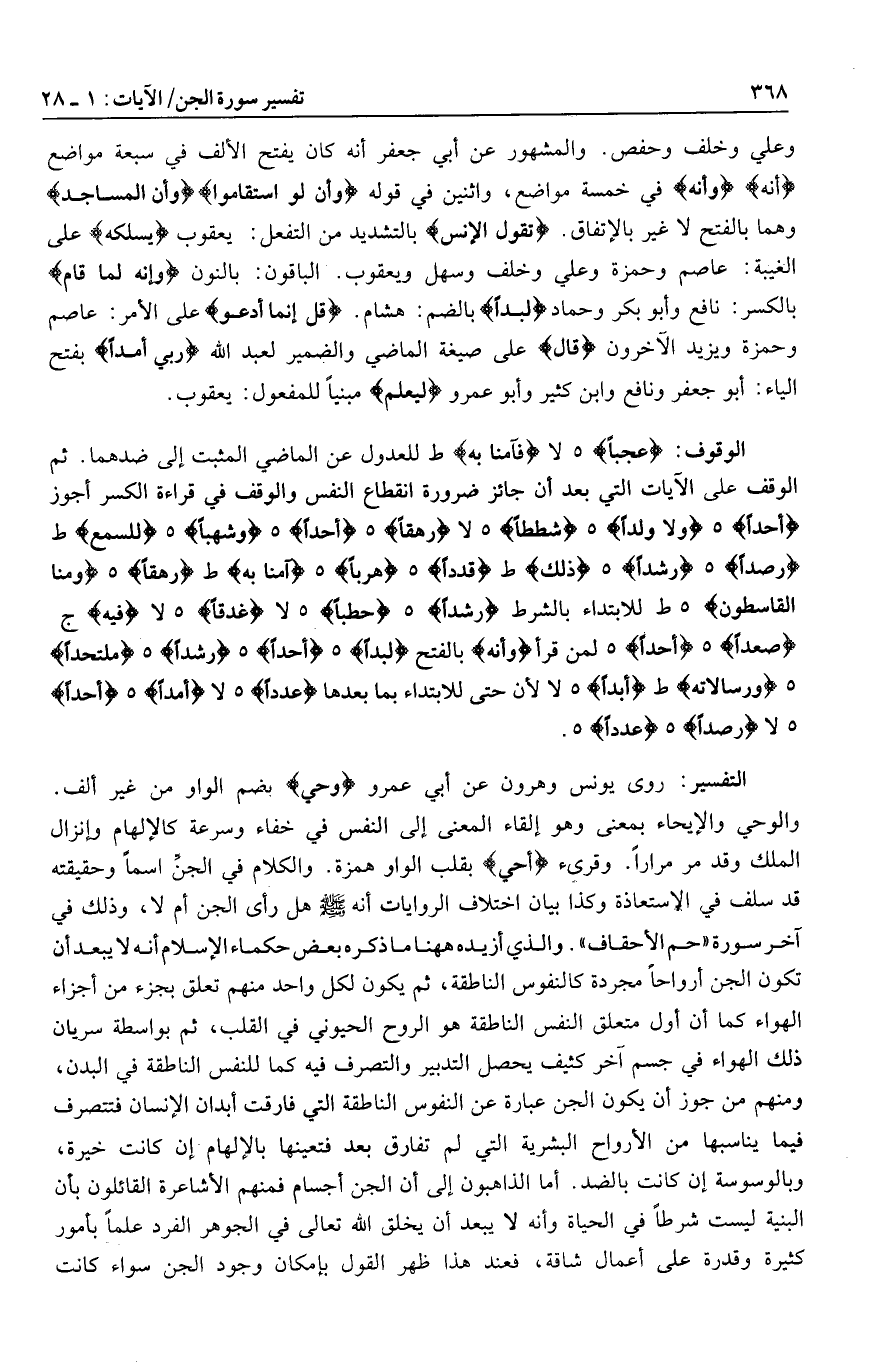 ٣٦٨
تفسير سورة الجن/ الآيات: ١ ـ ٢٨
وعلي وخلف وحفص. والمشهور عن أبي جعفر أنه كان يفتح الألف في سبعة مواضع
﴿أنه﴾ ﴿وأنه﴾ في خمسة مواضع، واثنين في قوله ﴿وأن لو استقاموا﴾ ﴿وأن المساجد﴾
وهما بالفتح لا غير بالإتفاق. ﴿تقول الإنس﴾ بالتشديد من التفعل: يعقوب ﴿يسلكه﴾ على
الغيبة: عاصم وحمزة وعلي وخلف وسهل ويعقوب. الباقون: بالنون ﴿وإنه لما قام﴾
بالكسر: نافع وأبو بكر وحماد ﴿لبداً﴾ بالضم: هشام. ﴿قل إنما أدعو﴾ على الأمر: عاصم
وحمزة ويزيد الآخرون ﴿قال﴾ على صيغة الماضي والضمير لعبد الله ﴿ربي أمداً﴾ بفتح
الياء: أبو جعفر ونافع وابن كثير وأبو عمرو ﴿ليعلم﴾ مبنياً للمفعول: يعقوب.
الوقوف: ﴿عجباً﴾ ٥ لا ﴿فآمنا به﴾ ط للعدول عن الماضي المثبت إلى ضدهما. ثم
الوقف على الآيات التي بعد أن جائز ضرورة انقطاع النفس والوقف في قراءة الكسر أجوز
﴿أحداً﴾ ٥ ﴿ولا ولداً﴾ ٥ ﴿شططاً﴾ ٥ لا ﴿رهقاً﴾ ٥ ﴿أحداً﴾ ٥ ﴿وشهباً﴾ ٥ ﴿للسمع﴾ ط
﴿رصداً﴾ ٥ ﴿رشداً﴾ ٥ ﴿ذلك﴾ ط ﴿قدداً﴾ ٥ ﴿هرباً﴾ ٥ ﴿آمنا به﴾ ط ﴿رهقاً﴾ ٥ ﴿ومنا
القاسطون﴾ ٥ ط للابتداء بالشرط ﴿رشداً﴾ ٥ ﴿حطباً﴾ ٥ لا ﴿غدقاً﴾ ٥ لا ﴿فيه﴾ ج
﴿صعداً﴾ ٥ ﴿أحداً﴾ ٥ لمن قرأ ﴿وأنه﴾ بالفتح ﴿لبداً﴾ ٥ ﴿أحداً﴾ ٥ ﴿رشداً﴾ ٥ ﴿ملتحداً﴾
٥ ﴿ورسالاته﴾ ط ﴿أبداً﴾ ٥ لا لأن حتى للابتداء بما بعدها ﴿عدداً﴾ ٥ لا ﴿أمداً﴾ ٥ ﴿أحداً﴾
٥ لا ﴿رصداً﴾ ٥ ﴿عدداً﴾ ٥ .
التفسير: روى يونس وهرون عن أبي عمرو ﴿وحي﴾ بضم الواو من غير ألف.
والوحي والإيحاء بمعنى وهو إلقاء المعنى إلى النفس في خفاء وسرعة كالإلهام وإنزال
الملك وقد مر مراراً. وقرىء ﴿أحي﴾ بقلب الواو همزة. والكلام في الجنِّ اسماً وحقيقته
قد سلف في الإستعاذة وكذا بيان اختلاف الروايات أنه ﷺ هل رأى الجن أم لا، وذلك في
آخر سورة «حم الأحقاف». والذي أزيده ههنا ما ذكره بعض حكماء الإسلام أنه لا يبعد أن
تكون الجن أرواحاً مجردة كالنفوس الناطقة، ثم يكون لكل واحد منهم تعلق بجزء من أجزاء
الهواء كما أن أول متعلق النفس الناطقة هو الروح الحيوني في القلب، ثم بواسطة سريان
ذلك الهواء في جسم آخر كثيف يحصل التدبير والتصرف فيه كما للنفس الناطقة في البدن،
ومنهم من جوز أن يكون الجن عبارة عن النفوس الناطقة التي فارقت أبدان الإنسان فتتصرف
فيما يناسبها من الأرواح البشرية التي لم تفارق بعد فتعينها بالإلهام إن كانت خيرة،
وبالوسوسة إن كانت بالضد. أما الذاهبون إلى أن الجن أجسام فمنهم الأشاعرة القائلون بأن
البنية ليست شرطاً في الحياة وأنه لا يبعد أن يخلق الله تعالى في الجوهر الفرد علماً بأمور
كثيرة وقدرة على أعمال شاقة، فعند هذا ظهر القول بإمكان وجود الجن سواء كانت